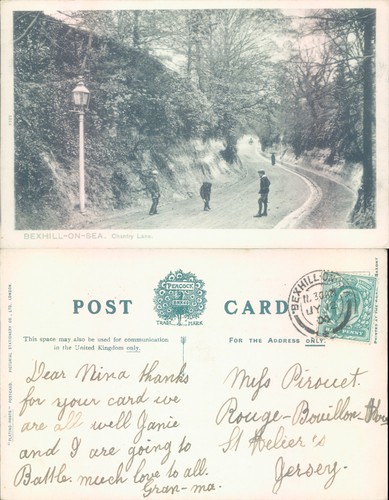 BEXHILL-ON-SEA. Chantry Lane.
POST CARD
PEACOCK
BRAND
TRADE MARK
This space may also be used for communication
in the United Kingdom only.
FOR THE ADDRESS ONLY.
BEXHILL-ON-
11.30
JY
06
PICTORIAL STATIONERY CO. LTD., LONDON
Dear Nina thanks
for your card we
are all well Janie
and I are going to
Battle much love to all.
Gran-ma.
Miss Pirouet.
Rouge-Bouillon-
St Helier's
Jersey.